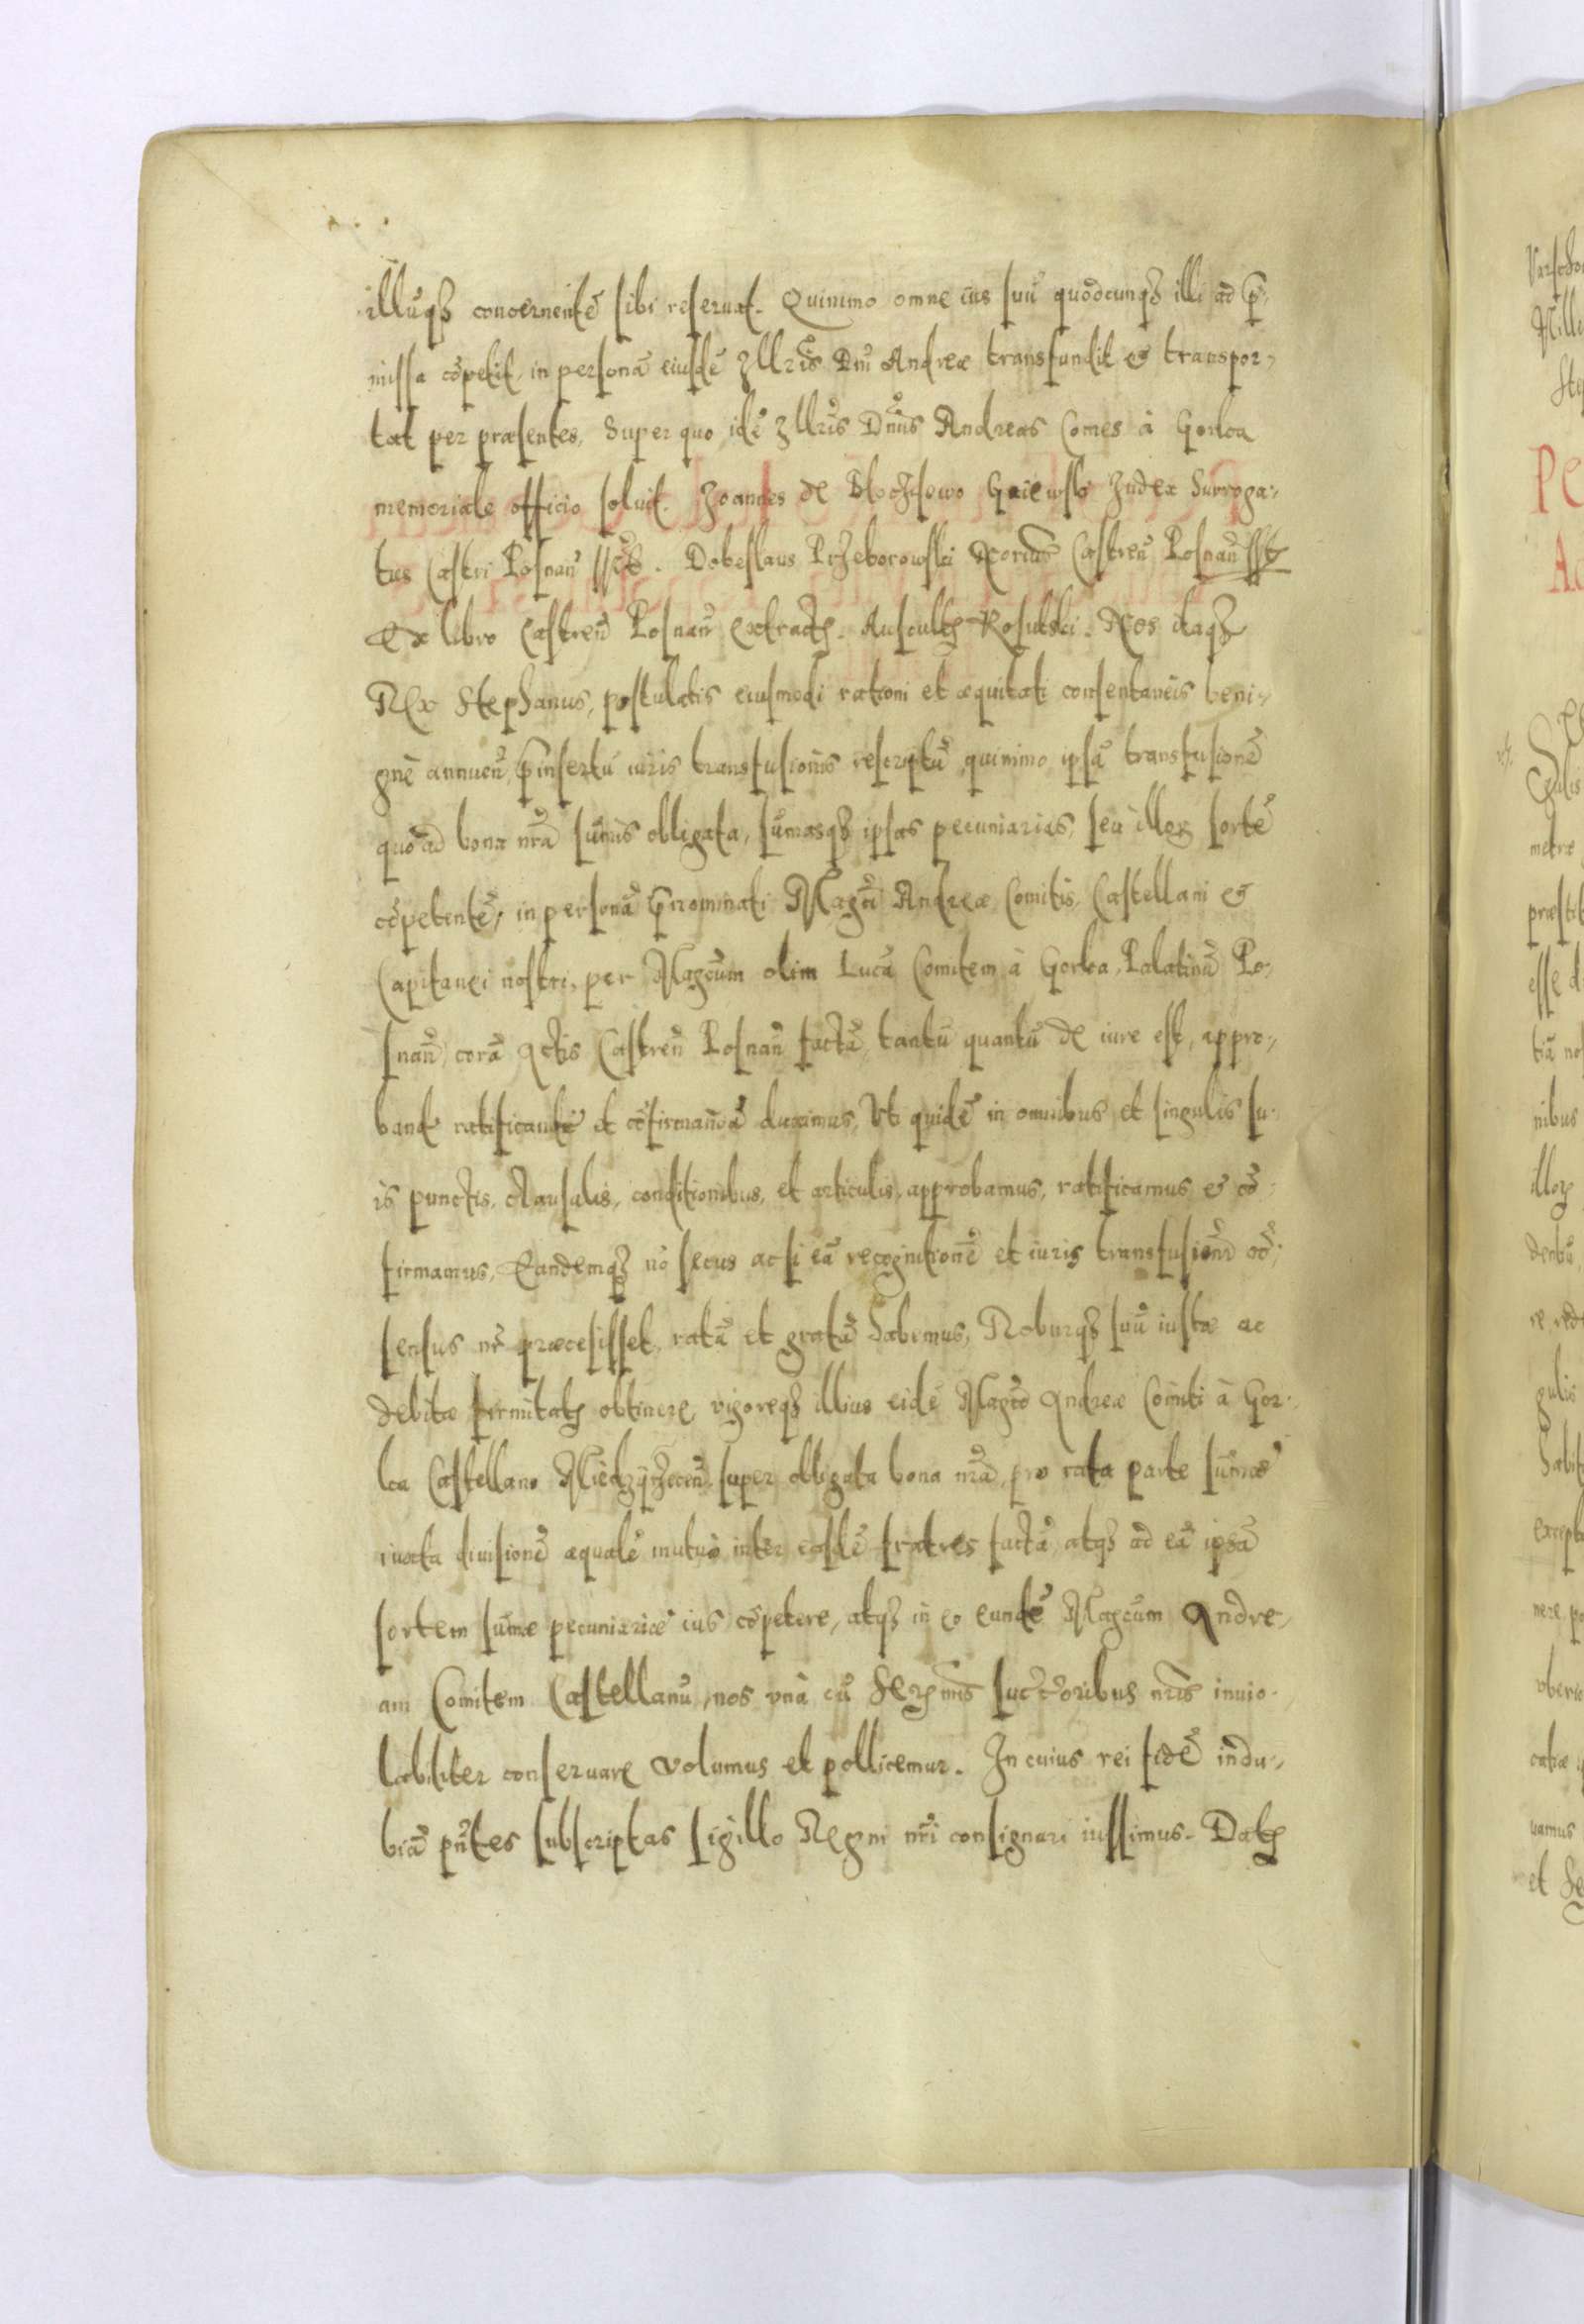 illūqȝ concernentē sibi reseruat. Quinimo omne ius suū quodcunqȝ illi ad p̄-
missa cōpetit, in personā eiusdē Illris Dni Andreæ transfundit et transpor-
tat per præsentes. Super quo idē Illris Dnus Andreas Comes à Gorka
memoriale officio soluit. Joannes de Blochzewo Gaiewski Judex Surroga-
tus Castri Posnan̄ sst. Dobeslaus Przeborowski Norius Castren̄ Posnan̄ sst
Ex libro Castren̄ Posnan̄ extract. Ascult Rosulski. Nos itaqȝ
Rex Stephanus, postulatis eiusmodi rationi et æquitati consentaneis beni-
gnè annuen̄, p̄insertū iuris transfusionis rescriptū, quinimo ipsā transfusionē
quo ad bona nr̄a sum̄is obligata, sum̄asqȝ ipsas pecuniarias, seu illoꝝ sortē
cōpetentē, in personā p̄nominati Magci Andreæ Comitis, Castellani et
Capitanei nostri, per Magcum olim Lucā Comitem à Gorka, Palatinū Po-
snan̄, corā Actis Castren̄ Posnan̄ factā, tantū quantū de iure est, appro-
band ratificandā et cōfirmandā duximus, Uti quidē in omnibus et singulis su-
is punctis, clausulis, conditionibus, et articulis, approbamus, ratificamus et cō-
firmamus, Eandemqȝ nō secus ac si eā recognitionē et iuris transfusionē cō-
sensus nr̄ præcesisset, ratā et gratā habemus, Roburqȝ suū iustæ ac
debitæ firmitatꝭ obtinere, vigoreqȝ illius eidē Magco Andreæ Comiti à Gor-
ka Castellano Miedzyrzecen̄. super obligata bona nr̄a, pro rata parte sum̄æ
iuxta diuisionē æqualē mutuò inter eosdē fratres factā, atqȝ ad eā ipsā
sortem sum̄æ pecuniariæ ius cōpetere, atqȝ in eo eundē Magcum Andre-
am Comitem Castellanū, nos vnà cū Serꝫmis succ̄oribus nr̄is inuio-
labiliter conseruare volumus et pollicemur. In cuius rei fidē indu-
biā pn̄tes subscriptas sigillo Regni nr̄i consignari iussimus. Datꝭ